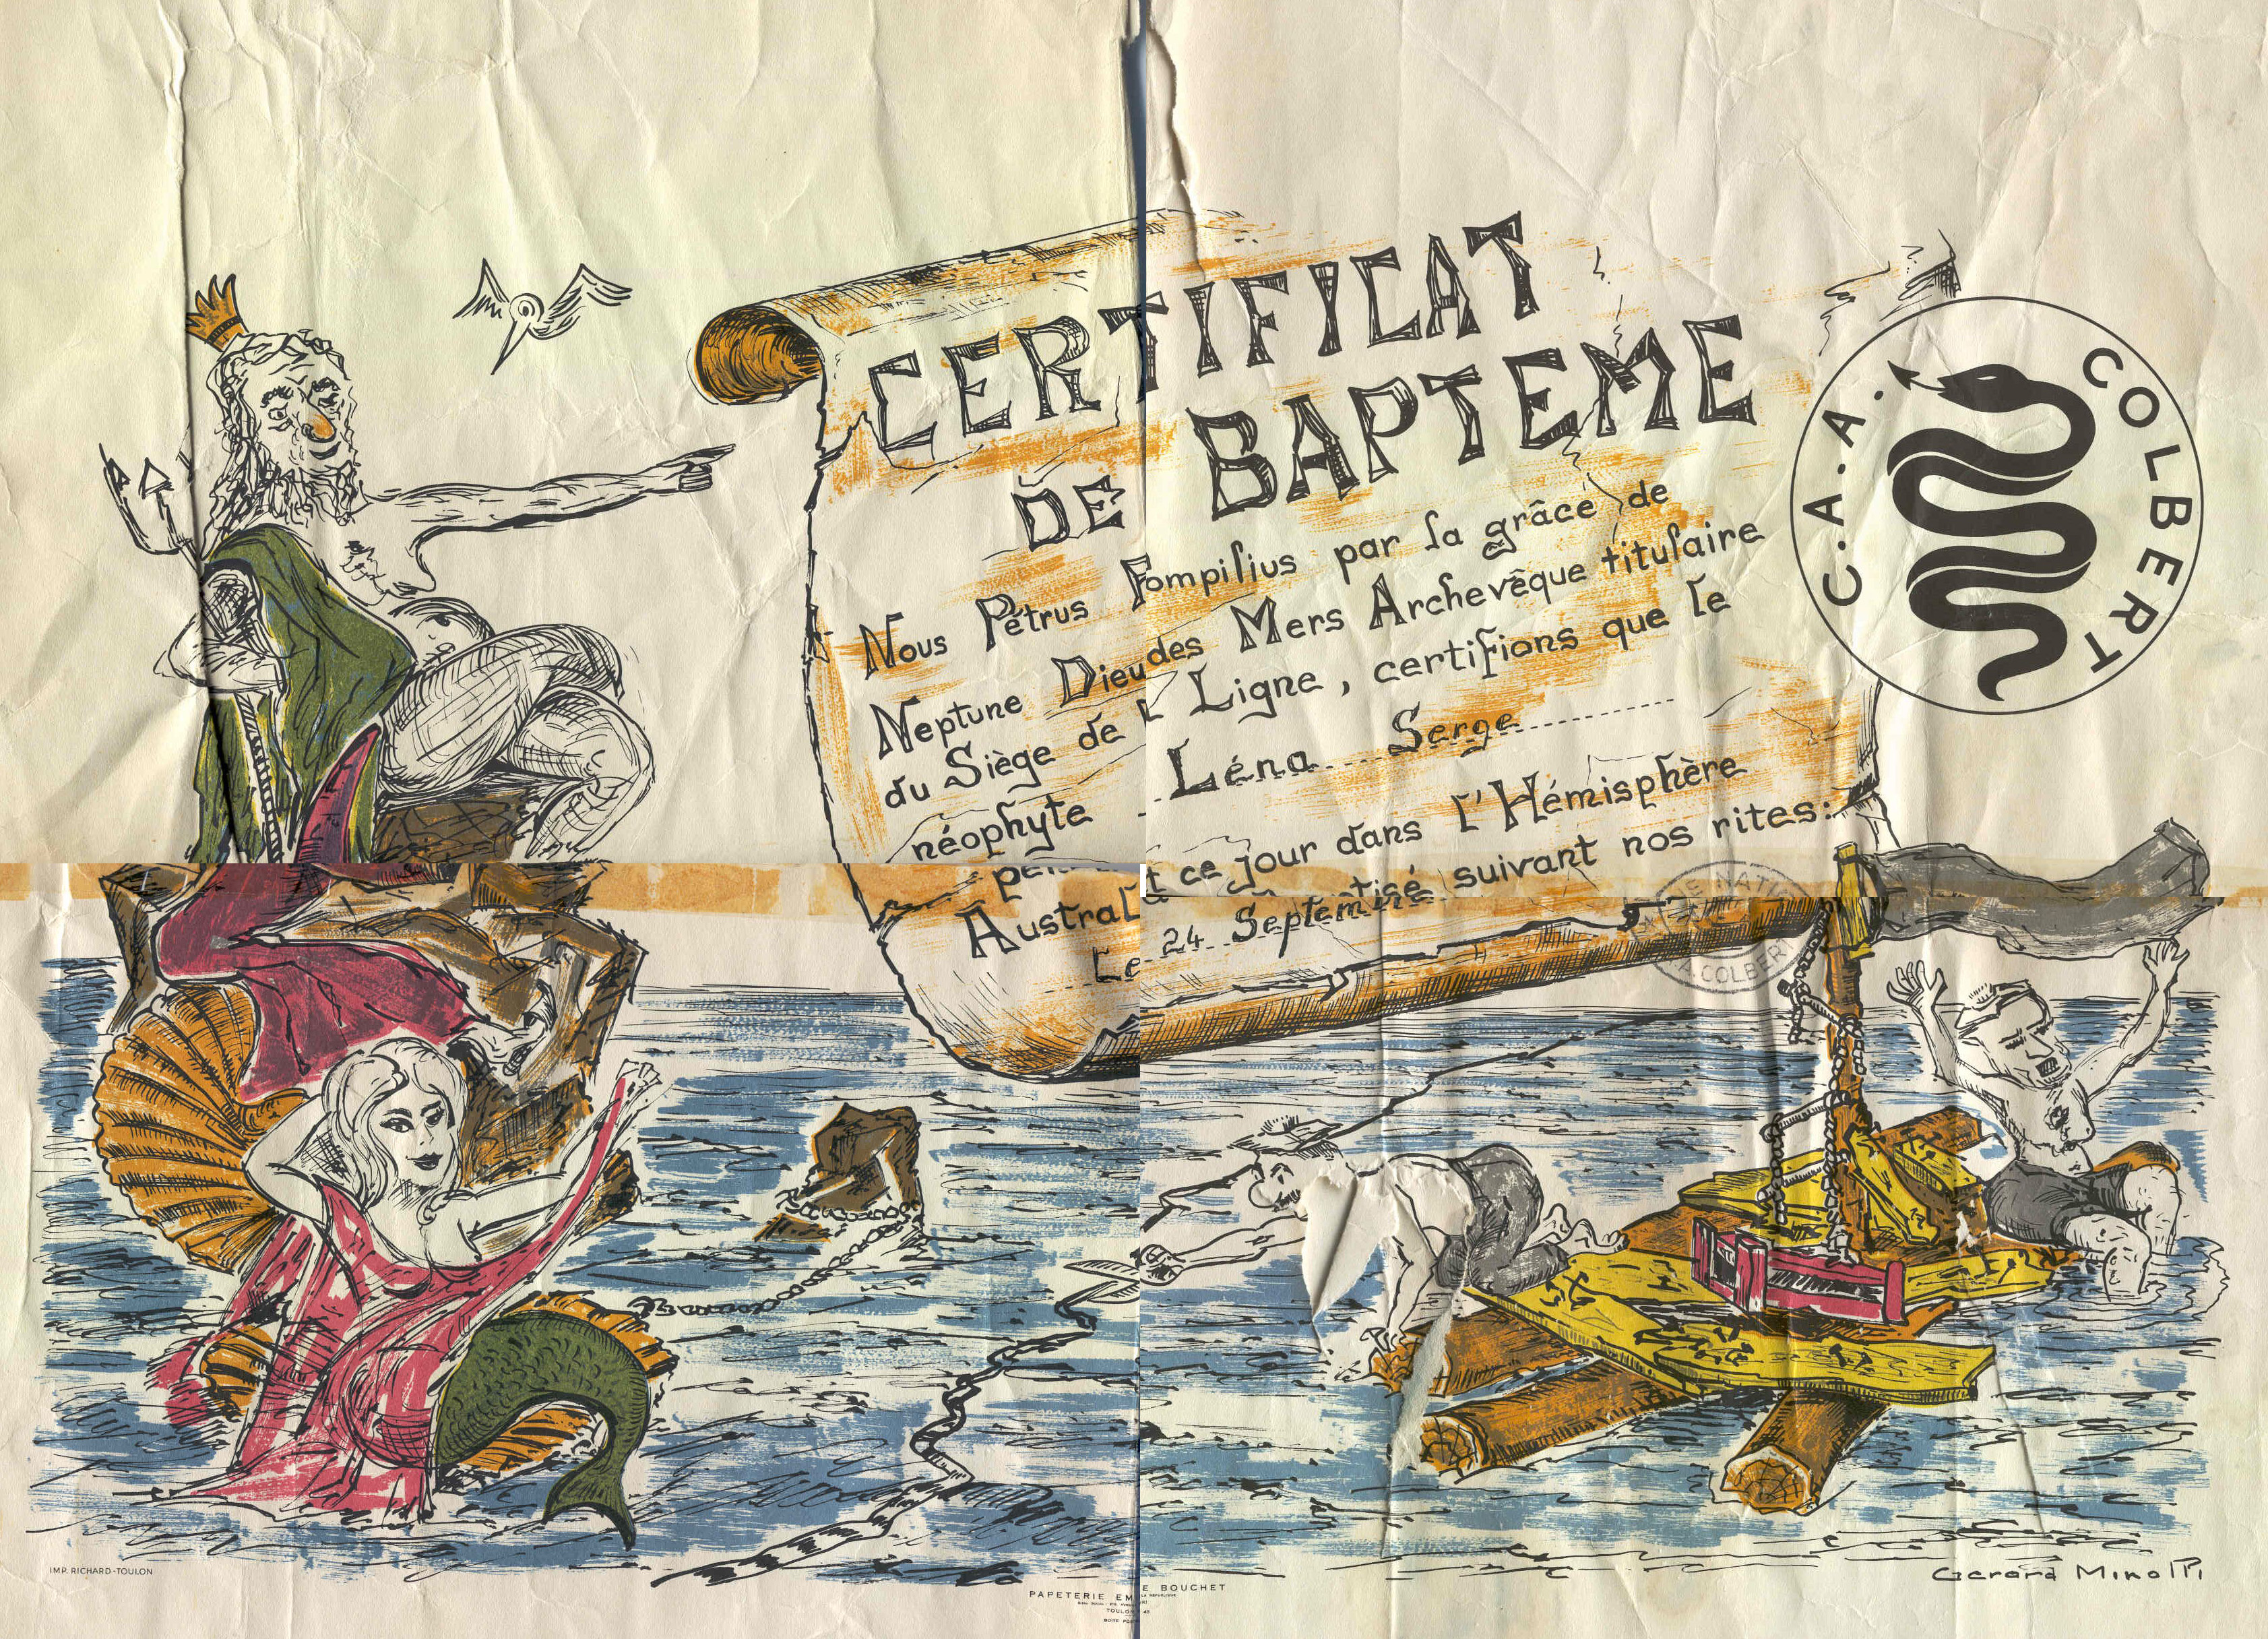 CERTIFICAT
DE BAPTEME
Nous Pétrus Pompilius par la grâce de
Neptune Dieu des Mers Archevêque titulaire
du Siège de L Ligne, certifions que le
néophyte Léna Serge
ce jour dans l'Hémisphère
Austral suivant nos rites:
Le 24 Septem
C.A.A. COLBERT
A. COLBERT
IMP. RICHARD-TOULON
PAPETERIE EM E BOUCHET
TOULON
Gerard Minolti